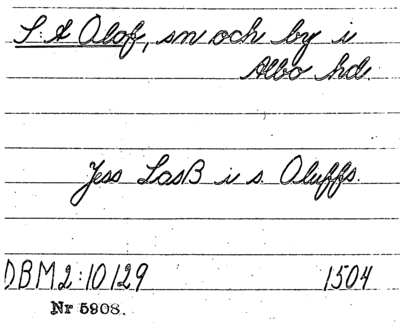 S:t Olof, sn och by i
Albo hd.
Jess LasB i s. Oluffs.
DBM2:10129 1504
Nr 5908.